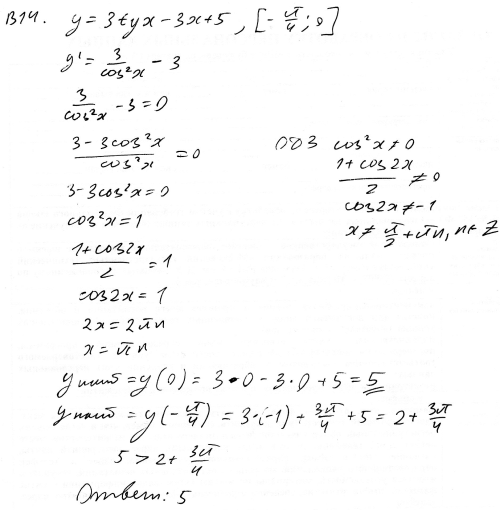 В14. y = 3tgx - 3x + 5, [-π/4; 0]
y' = 3/cos²x - 3
3/cos²x - 3 = 0
(3 - 3cos²x)/cos²x = 0
3 - 3cos²x = 0
cos²x = 1
(1 + cos2x)/2 = 1
cos2x = 1
2x = 2πn
x = πn
ОДЗ cos²x ≠ 0
(1 + cos2x)/2 ≠ 0
cos2x ≠ -1
x ≠ π/2 + πn, n ∈ Z
y наиб = y(0) = 3·0 - 3·0 + 5 = 5
y наиб = y(-π/4) = 3·(-1) + 3π/4 + 5 = 2 + 3π/4
5 > 2 + 3π/4
Ответ: 5